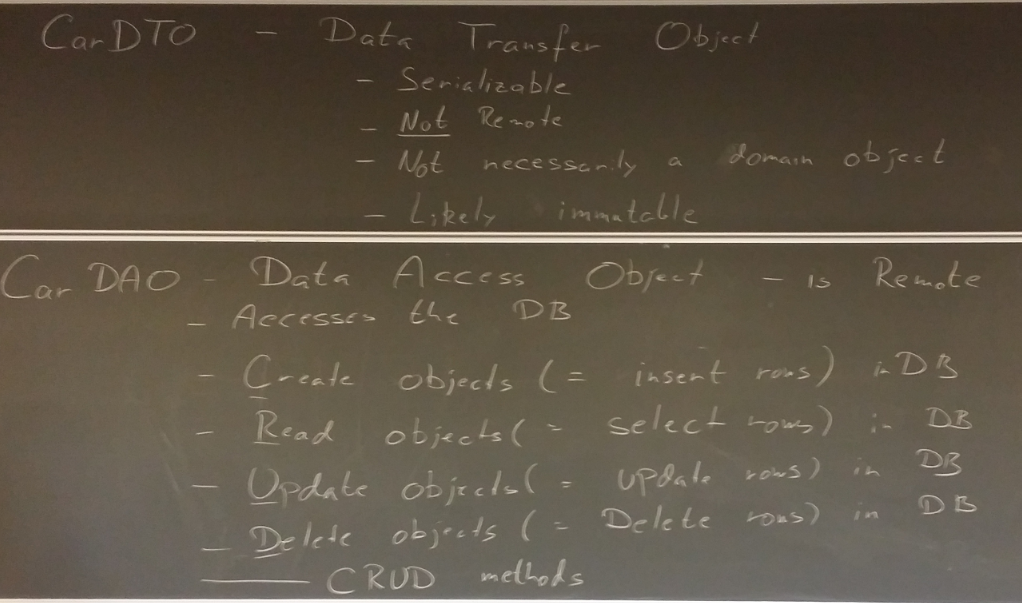 CarDTO - Data Transfer Object
- Serializable
- Not Remote
- Not necessarily a domain object
- Likely immutable
Car DAO - Data Access Object - is Remote
- Accesses the DB
- Create objects (= insert rows) in DB
- Read objects (= select rows) in DB
- Update objects (= update rows) in DB
- Delete objects (= Delete rows) in DB
CRUD methods